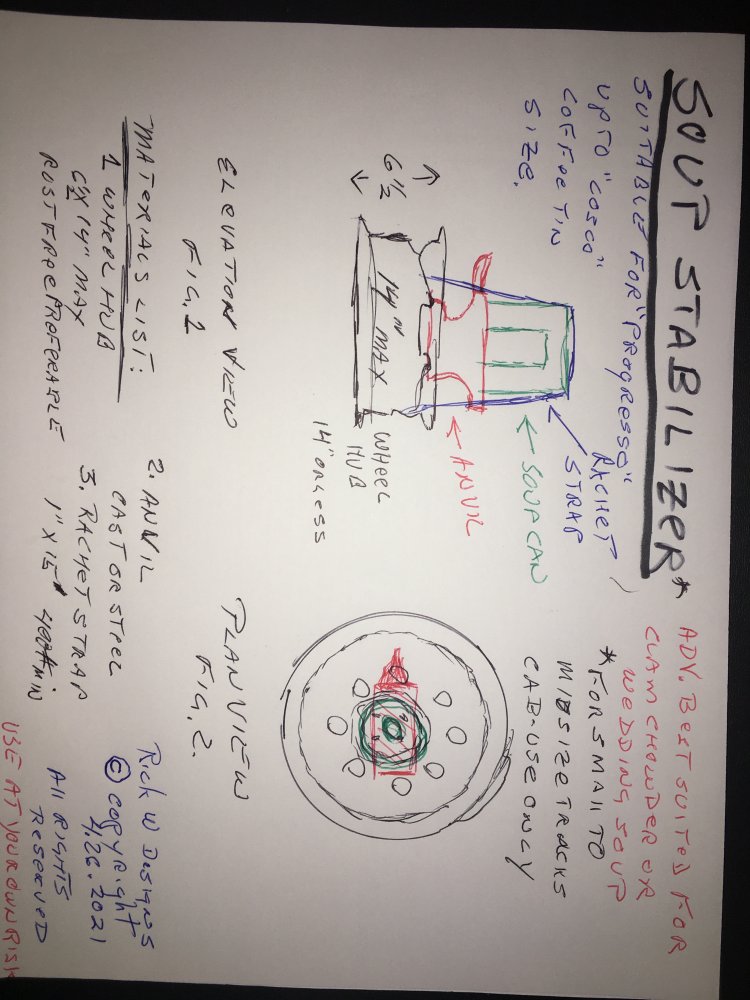 SOUP STABILIZER*
SUITABLE FOR "PROGRESSO",
UP TO "COSCO"
COFFEE TIN
SIZE.
ADV. BEST SUITED FOR
CLAM CHOWDER OR
WEDDING SOUP
*FOR SMALL TO
MIDSIZE TRACKS
CAB-USE ONLY
RACHET
STRAP
← SOUP CAN
← ANVIL
6 1/2
14" MAX
WHEEL
HUB
14" OR LESS
ELEVATION VIEW
FIG. 1
PLAN VIEW
FIG. 2.
MATERIALS LIST:
1 WHEEL HUB
6 1/2 X 14" MAX
RUST FREE PREFERABLE
2. ANVIL
CAST OR STEEL
3. RACHET STRAP
1" X 15' 400# MIN
RICK W DESIGNS
© COPYRIGHT
4.26.2021
All RIGHTS
RESERVED
USE AT YOUR OWN RISK